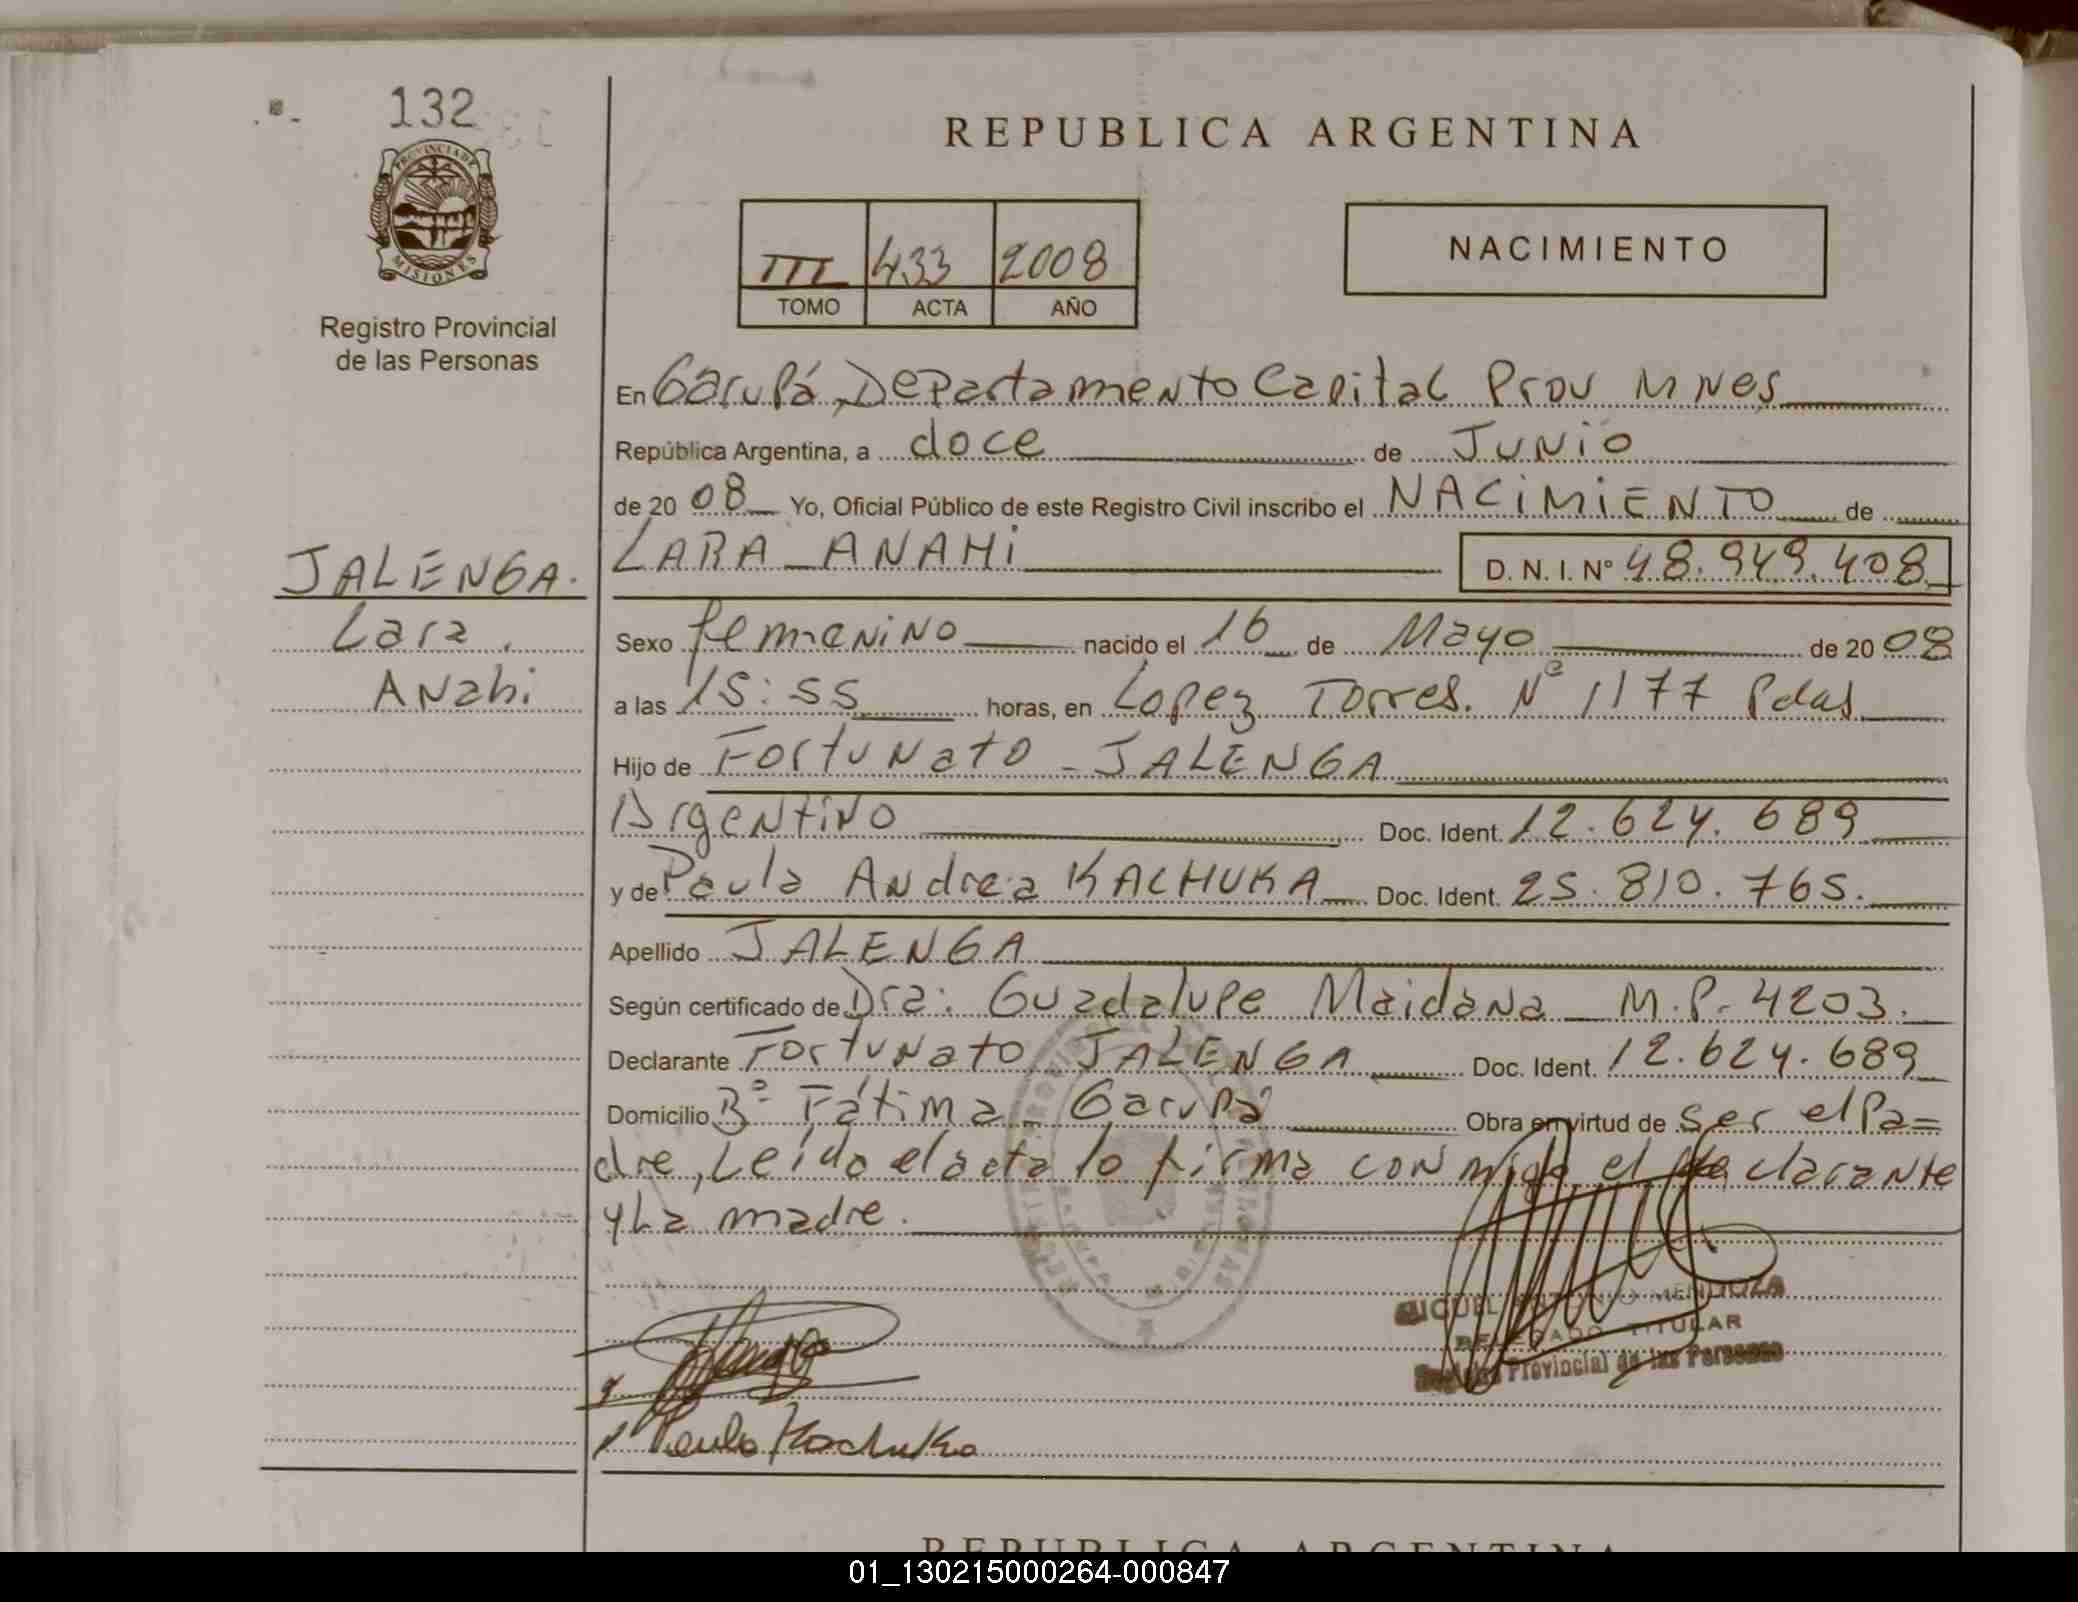 132
PROVINCIA DE
MISIONES
Registro Provincial
de las Personas
REPUBLICA ARGENTINA
III 433 2008
TOMO ACTA AÑO
NACIMIENTO
En Garupá, Departamento Capital Prov Mnes
República Argentina, a doce de Junio
de 2008 Yo, Oficial Público de este Registro Civil inscribo el NACIMIENTO de
LARA ANAHI D. N. I. N° 48.949.408
JALENGA.
Lara
Anahi
Sexo femenino nacido el 16 de Mayo de 2008
a las 15:55 horas, en Lopez Torres. N° 1177 Pdas
Hijo de Fortunato - JALENGA
Argentino Doc. Ident. 12.624.689
y de Paula Andrea KACHUKA Doc. Ident. 25.810.765.
Apellido JALENGA
Según certificado de Dra: Guadalupe Maidana M.P. 4203.
Declarante Fortunato JALENGA Doc. Ident. 12.624.689
Domicilio B° Fátima Garupá Obra en virtud de ser el Pa=
dre, Leido el acta lo firma conmigo el declarante
y La madre.
MIGUEL ANTONIO MENDOZA
DELEGADO TITULAR
Registro Provincial de las Personas
Paula Kachuka
REPUBLICA ARGENTINA
01_130215000264-000847